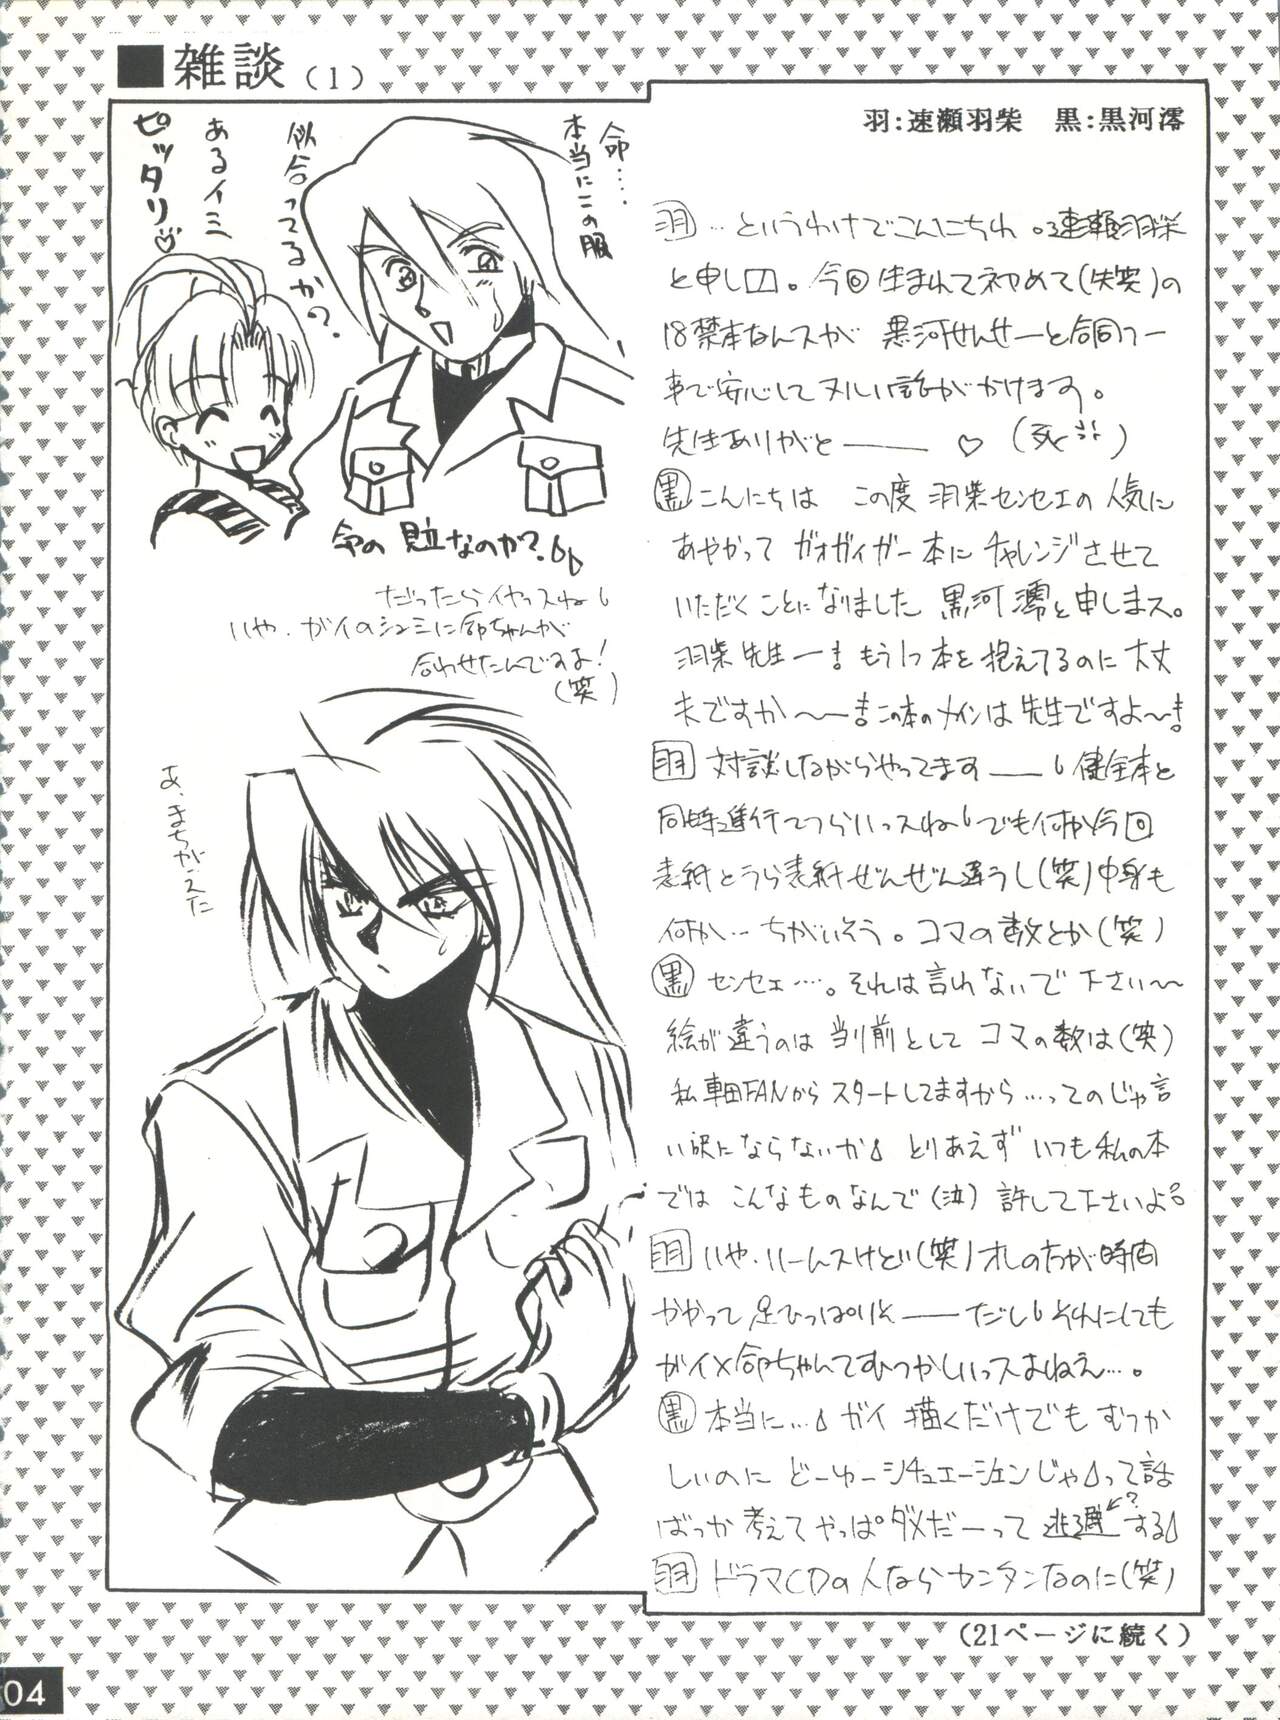 ■雑談(1)
羽:速瀬羽柴 黒:黒河澪
命‥‥
本当にこの服
似合ってるか?
あるイミ
ピッタリ♡
命の見立なのか?
だったらイヤっスね
いや、ガイのシュミに命ちゃんが
合わせたんですよ!
(笑)
あ、まちがえた
羽 …というわけでこんにちわ。速瀬羽柴
と申し□。今回生まれて初めて(失笑)の
18禁本なんスが 黒河せんせーと合同ワー
事で安心してヌルい話がかけます。
先生ありがと―― ♡ (死)
黒 こんにちは この度 羽柴センセエの人気に
あやかって ガオガイガー本に チャレンジさせて
いただくことになりました 黒河澪と申しまス。
羽柴先生ー! もう1つ本を抱えてるのに大丈
夫ですか〜ー! この本のメインは先生ですよ〜!
羽 対談しながらやってます―― 健全本と
同時進行でつらいっスね でも何か今回
表紙とうら表紙ぜんぜん違うし(笑)中身も
何か…ちがいそう。コマの数とか(笑)
黒 センセェ…。それは言わないで下さい〜
絵が違うのは当り前として コマの数は(笑)
私車田FANからスタートしてますから…ってのじゃ言
い訳にならないか とりあえず いつも私の本
では こんなものなんで(泣) 許して下さいよ
羽 いや、いーんスけど(笑)オレの方が時間
かかって足ひっぱりそ――だし それにしても
ガイ×命ちゃんてむつかしいっスよねえ…。
黒 本当に… ガイ描くだけでもむつか
しいのに どーゆーシチュエーションじゃって話
ばっか考えてやっぱダメだーって逃避?する
羽 ドラマCDの人ならカンタンなのに(笑)
(21ページに続く)
04